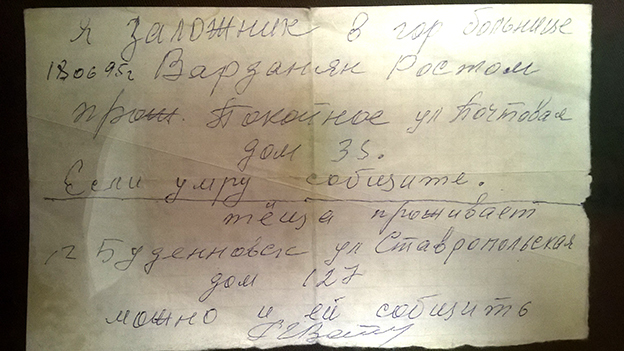 Я заложник в гор больнице
18 06 95г Варданян Ростом
прож. Покойное ул Почтовая
дом 35.
Если умру собщите.
тёща проживает
г Буденновск ул Ставропольская
дом 127
можно и ей собщить